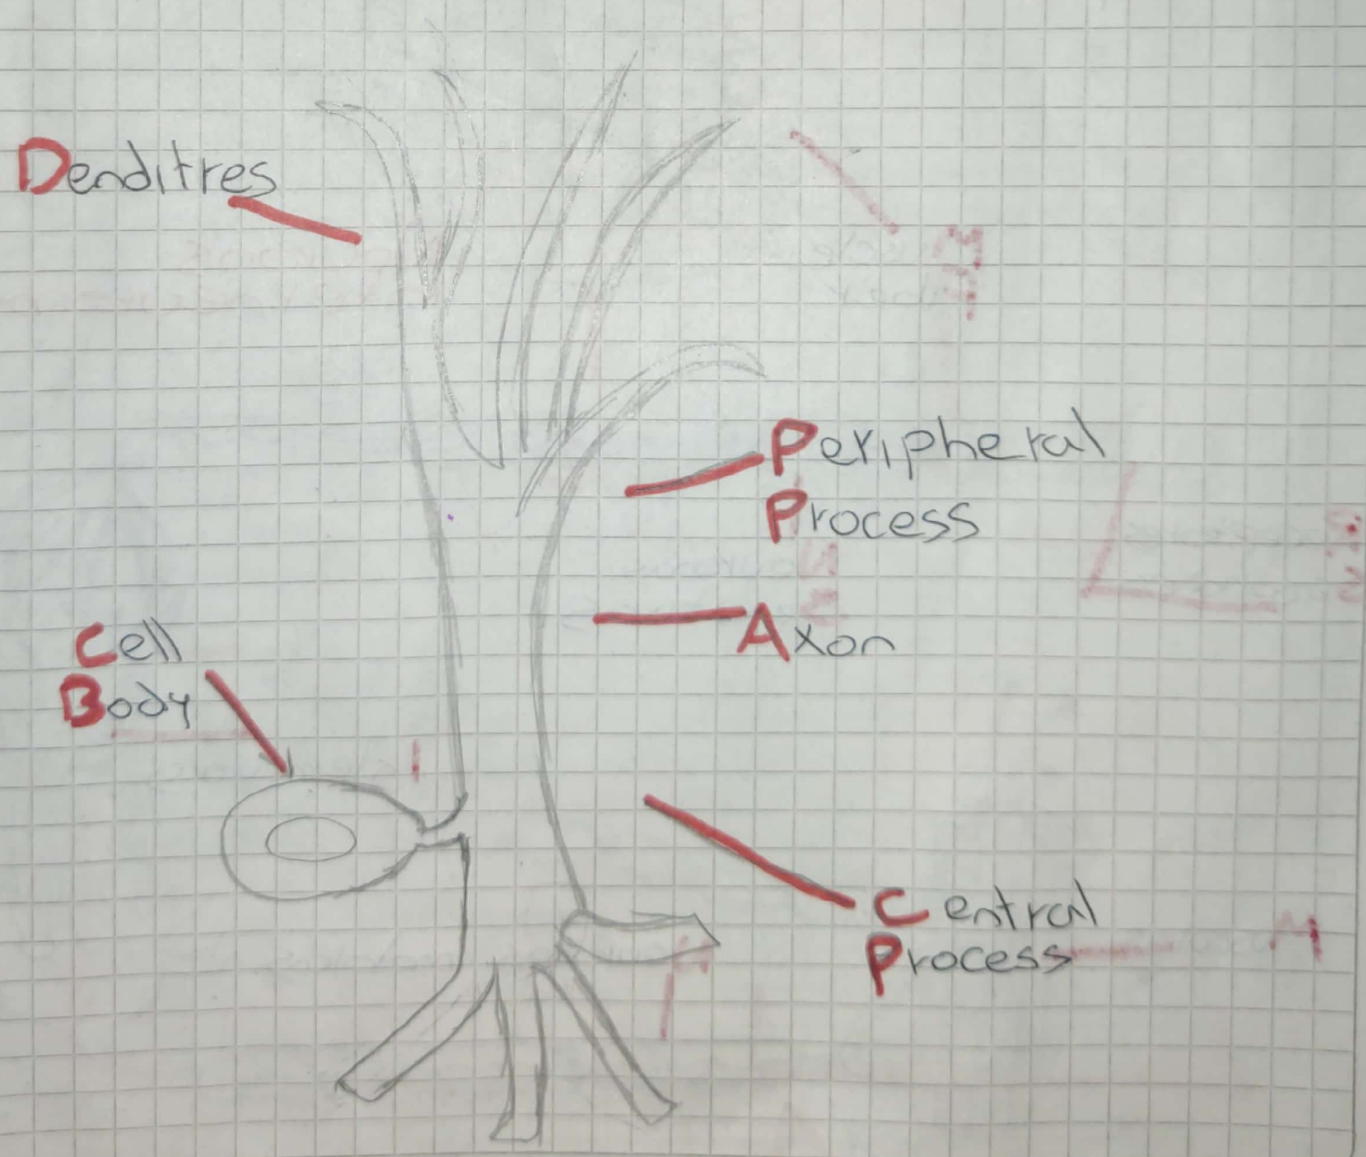 Denditres
Peripheral
Process
Axon
Cell
Body
Central
Process